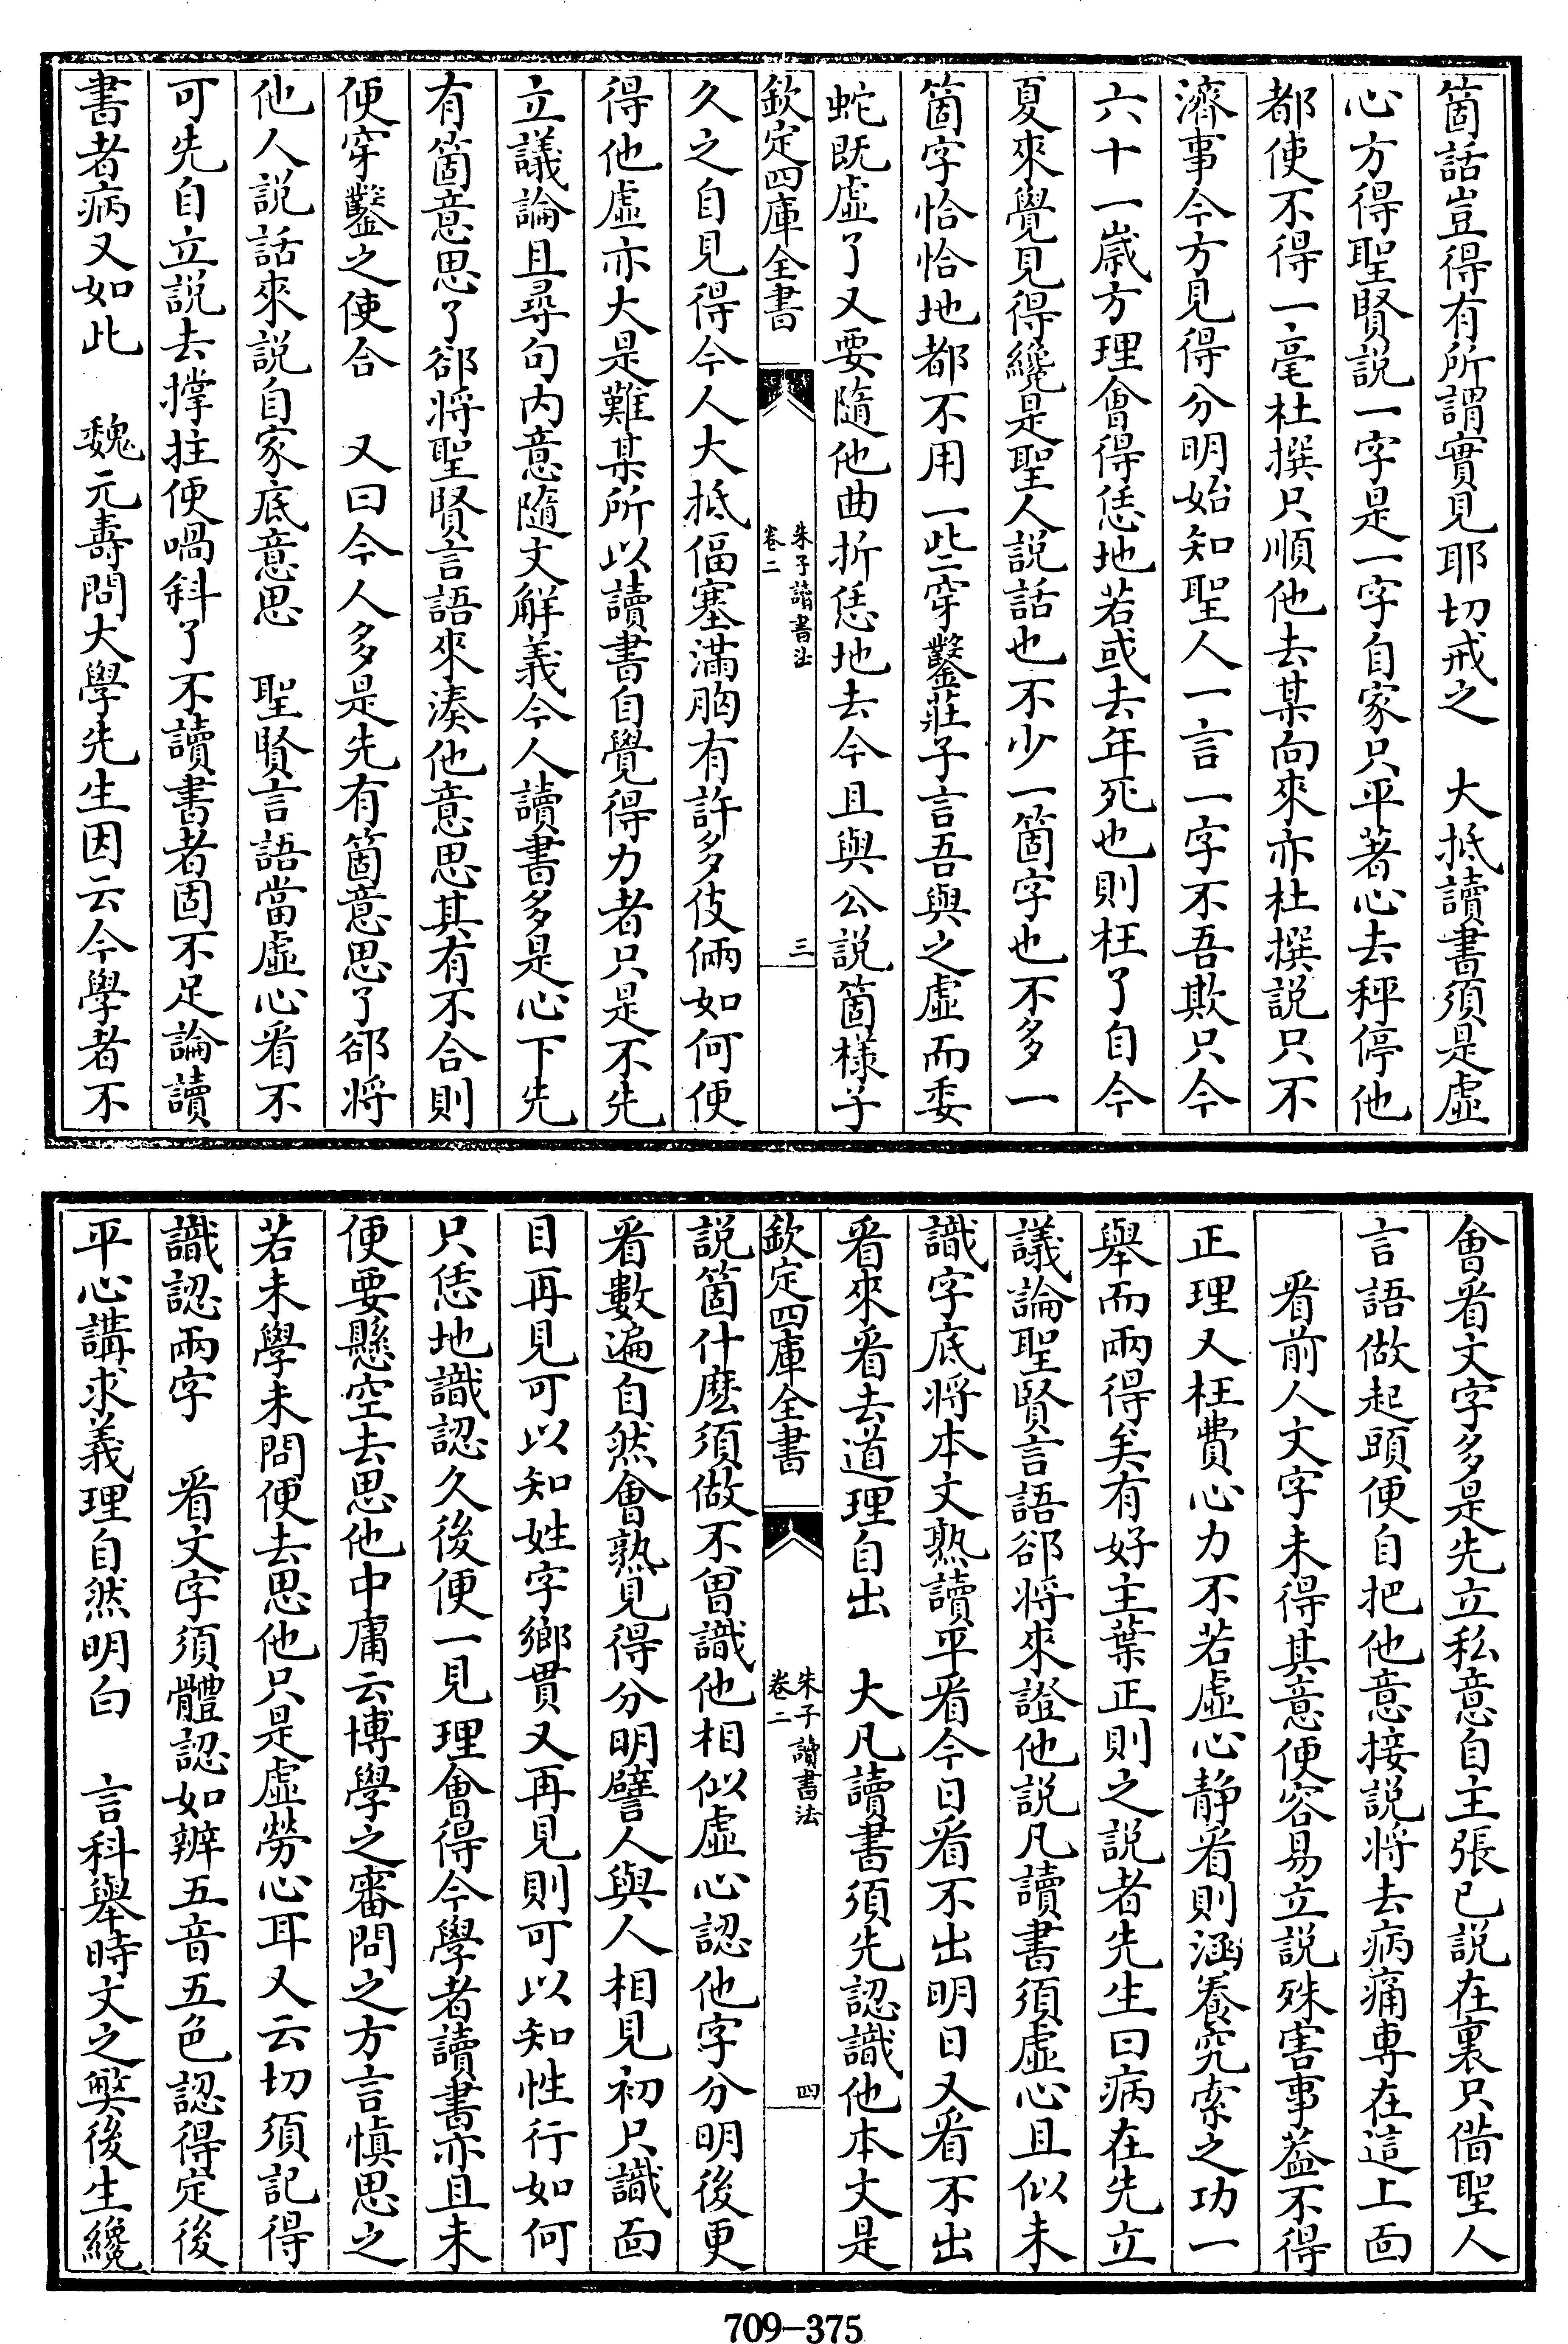 箇話豈得有所謂實見耶切戒之　大抵讀書須是虛
心方得聖賢説一字是一字自家只平著心去秤停他
都使不得一毫杜撰只順他去某向來亦杜撰説只不
濟事今方見得分明始知聖人一言一字不吾欺只今
六十一歳方理會得恁地若或去年死也則枉了自今
夏來覺見得纔是聖人説話也不少一箇字也不多一
箇字恰恰地都不用一些穿鑿莊子言吾與之虛而委
蛇既虛了又要隨他曲折恁地去今且與公説箇樣子
欽定四庫全書
朱子讀書法
卷二
三
久之自見得今人大抵偪塞滿胸有許多伎倆如何便
得他虛亦大是難某所以讀書自覺得力者只是不先
立議論且尋句内意隨文解義今人讀書多是心下先
有箇意思了郤将聖賢言語來湊他意思其有不合則
便穿鑿之使合　又曰今人多是先有箇意思了郤将
他人説話來説自家底意思　聖賢言語當虛心看不
可先自立説去撑拄便喎斜了不讀書者固不足論讀
書者病又如此　魏元壽問大學先生因云今學者不
會看文字多是先立私意自主張已説在裏只借聖人
言語做起頭便自把他意接説将去病痛專在這上面
看前人文字未得其意便容易立説殊害事葢不得
正理又枉費心力不若虛心静看則涵養究索之功一
舉而兩得矣有好主葉正則之説者先生曰病在先立
議論聖賢言語郤将來證他説凡讀書須虛心且似未
識字底将本文熟讀平看今日看不出明日又看不出
看來看去道理自出　大凡讀書須先認識他本文是
欽定四庫全書
朱子讀書法
卷二
四
説箇什麽須做不曾識他相似虛心認他字分明後更
看數遍自然會熟見得分明譬人與人相見初只識面
目再見可以知姓字鄉貫又再見則可以知性行如何
只恁地識認久後便一見理會得今學者讀書亦且未
便要懸空去思他中庸云博學之審問之方言慎思之
若未學未問便去思他只是虛勞心耳又云切須記得
識認兩字　看文字須體認如辨五音五色認得定後
平心講求義理自然明白　言科舉時文之獘後生纔
709-375